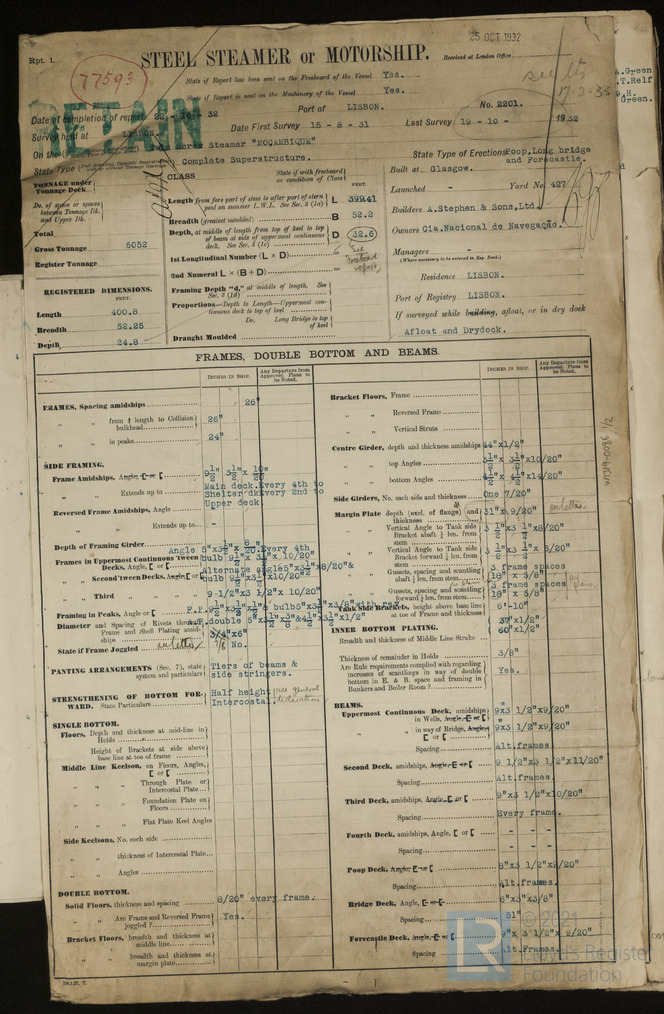 Rpt. 1.
25 OCT 1932
77593
STEEL STEAMER or MOTORSHIP.
Received at London Office
State if Report has been sent on the Freeboard of the Vessel Yes.
State if Report is sent on the Machinery of the Vessel Yes.
RETAIN
Date of completion of report 22 - 10 - 32
Port of LISBON.
No. 2201.
17.2.33
Survey held at LISBON.
Date First Survey 15 - 8 - 31
Last Survey 19 - 10 - 1932
On the Screw Steamer "MOÇAMBIQUE"
State Type Complete Superstructure.
State Type of Erections Poop, Long bridge and Forecastle.
TONNAGE under Tonnage Deck
Do. of space or spaces between Tonnage Dk. and Upper Dk.
Total
Gross Tonnage 6052
Register Tonnage
REGISTERED DIMENSIONS.
FEET.
Length 400.8
Breadth 52.25
Depth 24.8
CLASS
State if with freeboard as condition of Class
FEET.
Length from fore part of stem to after part of stern post on summer L.W.L. See Sec. 3 (1a) L 399.41
Breadth (greatest moulded) B 52.2
Depth, at middle of length from top of keel to top of beam at side of uppermost continuous deck. See Sec. 3 (1c) D 32.6
1st Longitudinal Number (L × D) =
2nd Numeral L × (B + D) =
See Freeboard report
Framing Depth "d," at middle of length. See Sec. 3 (1d)
Proportions—Depth to Length—Uppermost continuous deck to top of keel
Do. Long Bridge to top of keel
Draught Moulded
Built at Glasgow.
Launched - Yard No. 427
Builders A. Stephen & Sons, Ltd.
Owners Cia. Nacional de Navegação.
Managers -
(Where necessary to be entered in Reg. Book.)
Residence LISBON.
Port of Registry LISBON.
If surveyed while building, afloat, or in dry dock
Afloat and Drydock.
FRAMES, DOUBLE BOTTOM AND BEAMS.
INCHES IN SHIP.
Any Departure from Approved Plans to be Noted.
INCHES IN SHIP.
Any Departure from Approved Plans to be Noted.
FRAMES, Spacing amidships 26"
" " from ⅗ length to Collision bulkhead 26"
" " in peaks 24"
SIDE FRAMING.
Frame Amidships, Angle, [ or [ 9½" 3½" x 10/20"
" " Extends up to Main deck. Every 4th to Shelter dk. Every 2nd to Upper deck.
Reversed Frame Amidships, Angle -
" " Extends up to -
Depth of Framing Girder
Frames in Uppermont Continuous 'tween Decks, Angle, [ or [
" Second 'tween Decks, Angle, [ or [
" Third " " " 9-1/2"x3 1/2"x 10/20"
Framing in Peaks, Angle or [
Diameter and Spacing of Rivets through Frame and Shell Plating amidships
State if Frame Joggled No.
PANTING ARRANGEMENTS (Sec. 7), state system and particulars Tiers of beams & side stringers.
STRENGTHENING OF BOTTOM FORWARD. State Particulars Half height Intercostal.
SINGLE BOTTOM.
Floors, Depth and thickness at mid-line in Holds
Height of Brackets at side above base line at toe of frame
Middle Line Keelson, on Floors, Angles, [ or [
" " Through Plate or Intercostal Plate
" " Foundation Plate on Floors
" " Flat Plate Keel Angles
Side Keelsons, No. each side
" " thickness of Intercostal Plate
" " Angles
DOUBLE BOTTOM.
Solid Floors, thickness and spacing 8/20" every frame.
" " Are Frame and Reversed Frame joggled? Yes.
Bracket Floors, breadth and thickness at middle line
" " breadth and thickness at margin plate
Bracket Floors, Frame
" " Reversed Frame
" " Vertical Struts
Centre Girder, depth and thickness amidships 44"x1/2"
" " top Angles 3½" x 3½"x10/20"
" " bottom Angles 4½"x 4½"x14/20"
Side Girders, No. each side and thickness One 7/20"
Margin Plate depth (excl. of flange) and thickness 31"x 9/20"
" " Vertical Angle to Tank side Bracket abaft ¼ len. from stem 3½"x3½"x8/20"
" " Vertical Angle to Tank side Bracket forward ¼ len. from stem
" " Gussets, spacing and scantling abaft ¼ len. from stem 3 frame spaces 18" x 5/8"
" " Gussets, spacing and scantling forward ¼ len. from stem 3 frame spaces 18" x 5/8"
Tank Side Brackets, height above base line at toe of Frame and thickness 6'-10"
INNER BOTTOM PLATING.
Breadth and thickness of Middle Line Strake 60"x1/2"
Thickness of remainder in Holds 3/8"
Are Rule requirements complied with regarding increases of scantlings in way of double bottom in E. & B. space and framing in Bunkers and Boiler Room? Yes.
BEAMS.
Uppermost Continuous Deck, amidships in Wells, Angle, [ or [ 9x3 1/2"x9/20"
" " in way of Bridge, Angle, [ or [ 9x3 1/2"x9/20"
Spacing Alt. frames
Second Deck, amidships, Angle, [ or [ 9 1/2"x3 1/2"x11/20"
Spacing Alt. frames.
Third Deck, amidships, Angle, [ or [ 9"x3 1/2"x10/20"
Spacing Every frame.
Fourth Deck, amidships, Angle, [ or [ - - -
Spacing - - -
Poop Deck, Angle, [ or [ 8"x3 1/2"x9/20"
Spacing Alt. frames.
Bridge Deck, Angle, [ or [ 6"x3"x3/8"
Spacing 51"
Forecastle Deck, Angle, [ or [ 9"x 3 1/2"x 9/20"
Spacing Alt. Frames.
© 2021
Lloyd's Register
Foundation